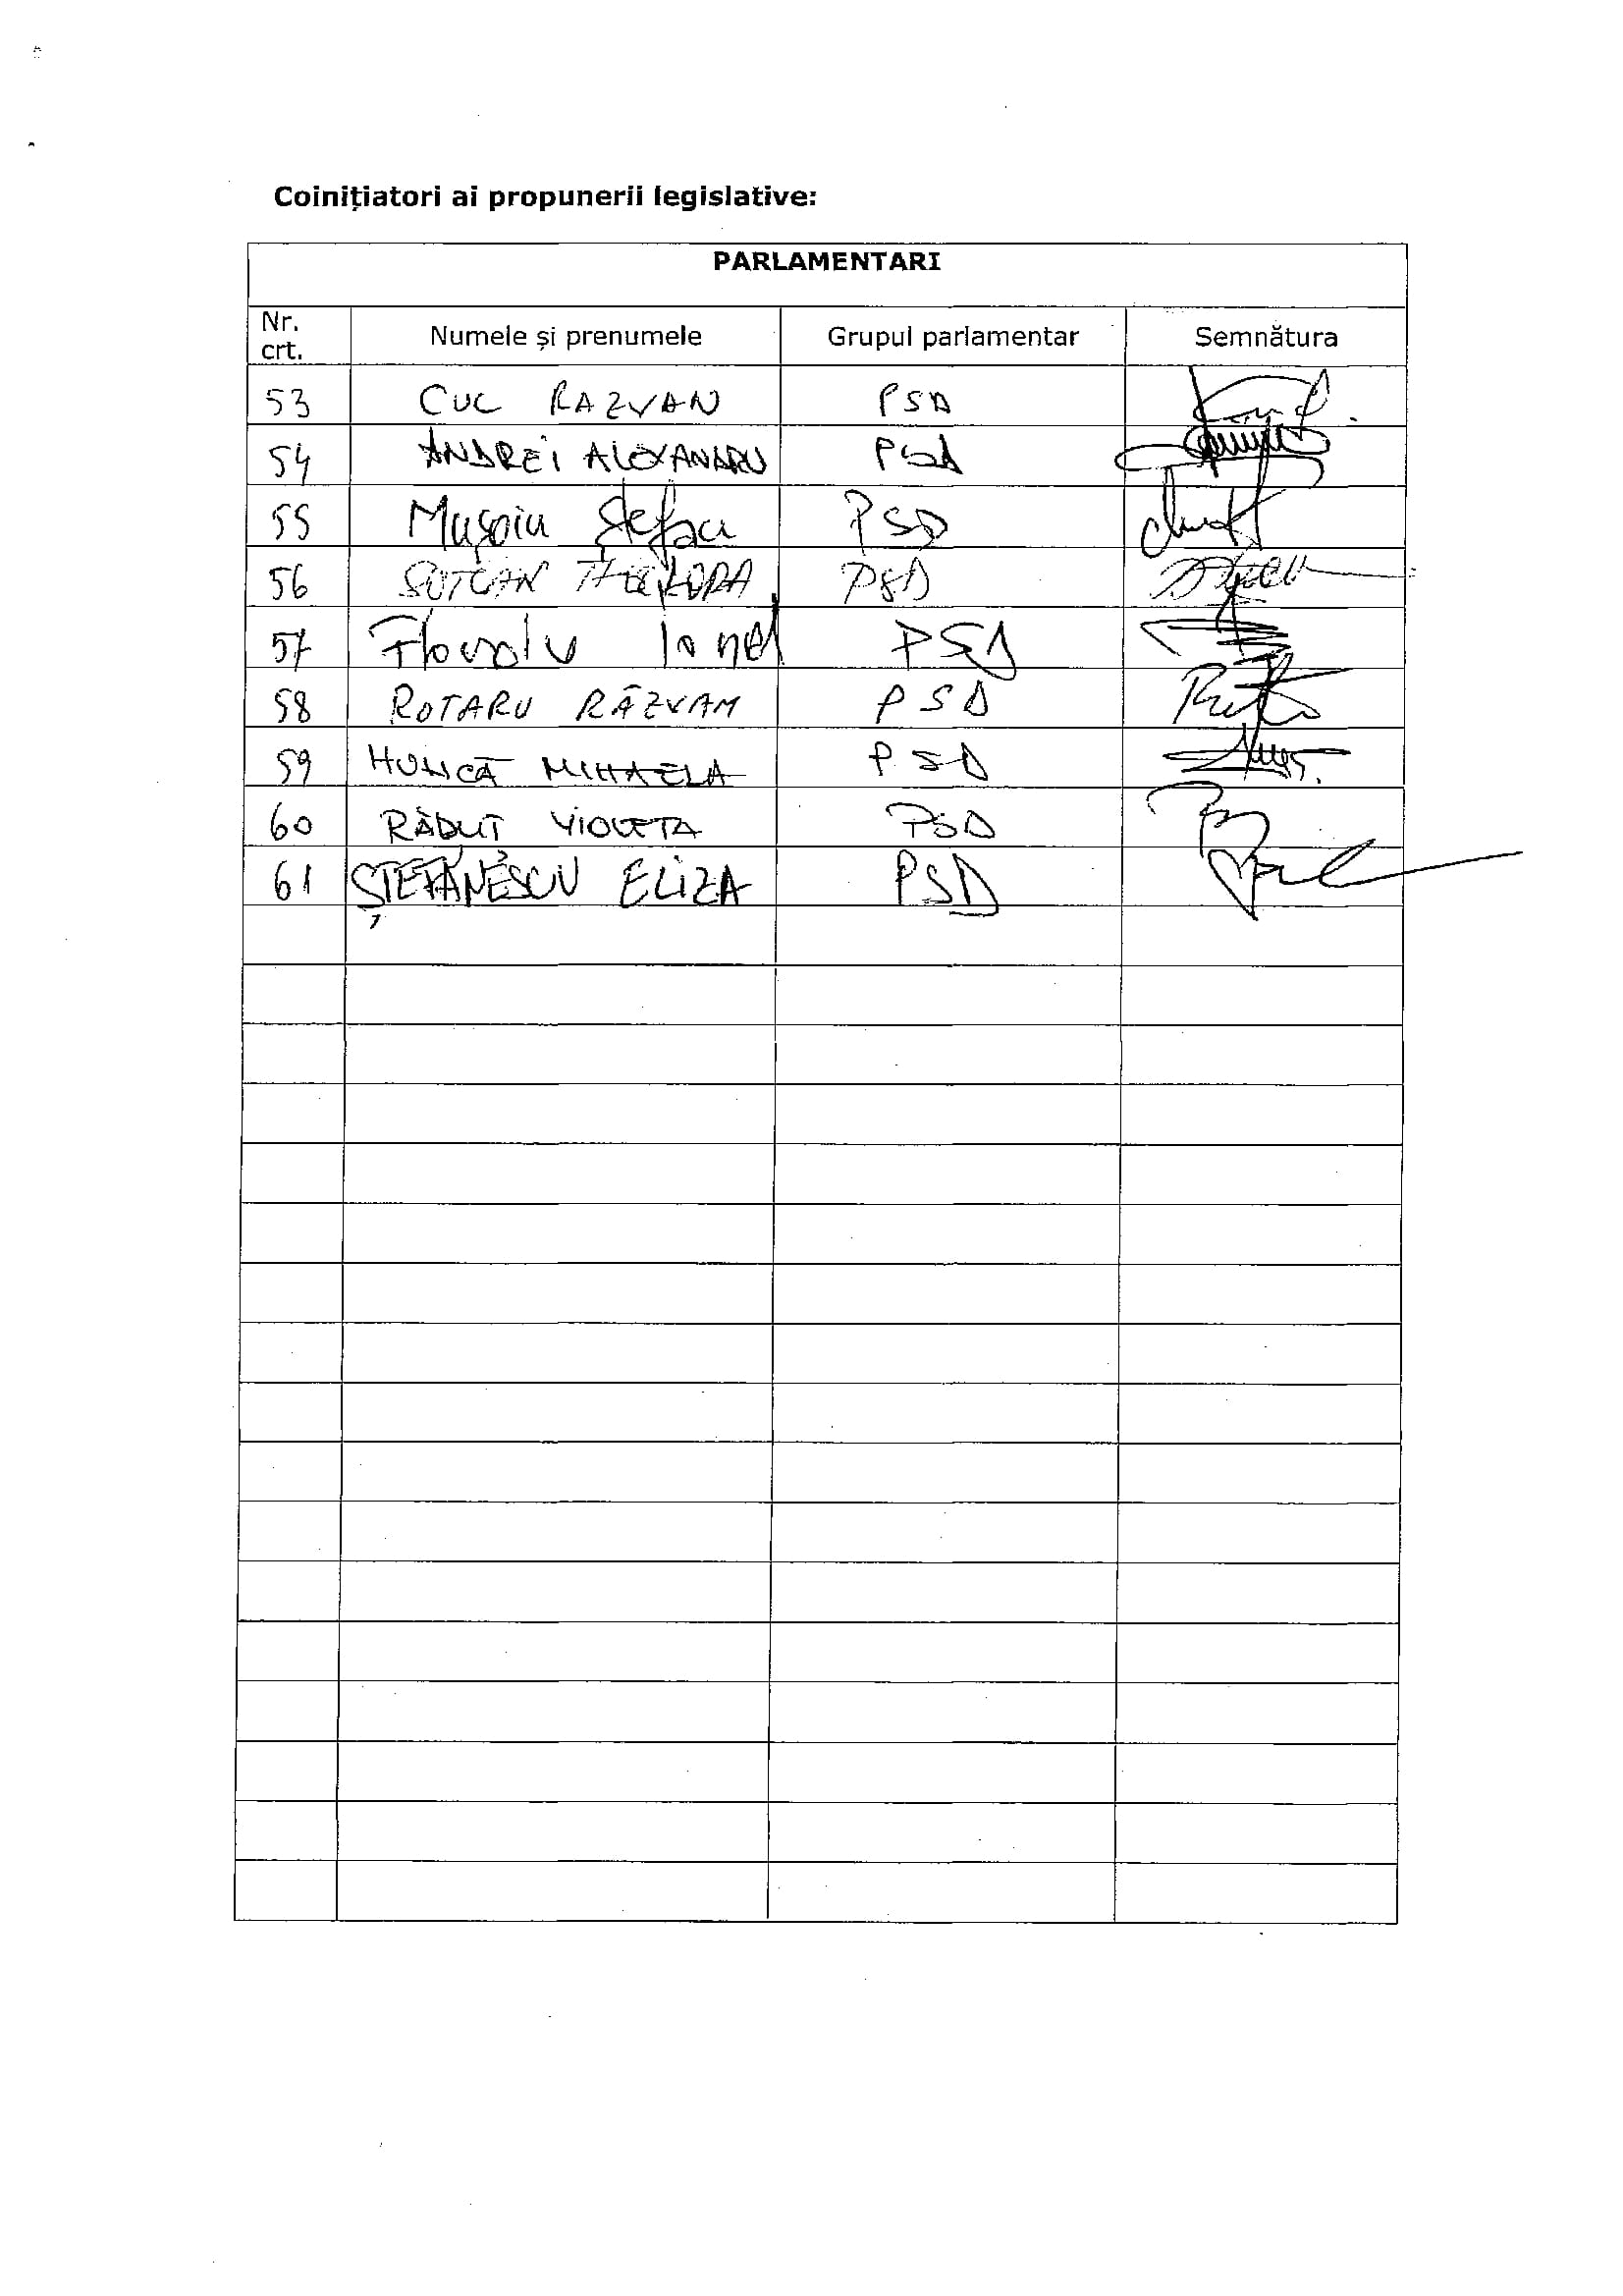 Coinițiatori ai propunerii legislative:
PARLAMENTARI
Nr. crt. Numele și prenumele Grupul parlamentar Semnătura
53 CUC RAZVAN PSD
54 ANDREI ALEXANDRU PSD
55 Mușoiu Ștefan PSD
56 ȘOTCAN THEODORA PSD
57 Floroiu Ionel PSD
58 ROTARU RĂZVAN PSD
59 HUNCĂ MIHAELA PSD
60 RĂDUȚ VIOLETA PSD
61 ȘTEFĂNESCU ELIZA PSD